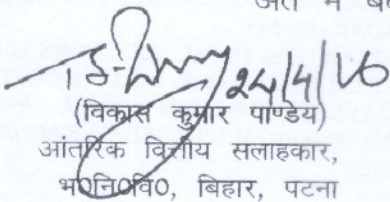 अंत में
24/4/16
(विकास कुमार पाण्डेय)
आंतरिक वित्तीय सलाहकार,
भ0नि0वि0, बिहार, पटना